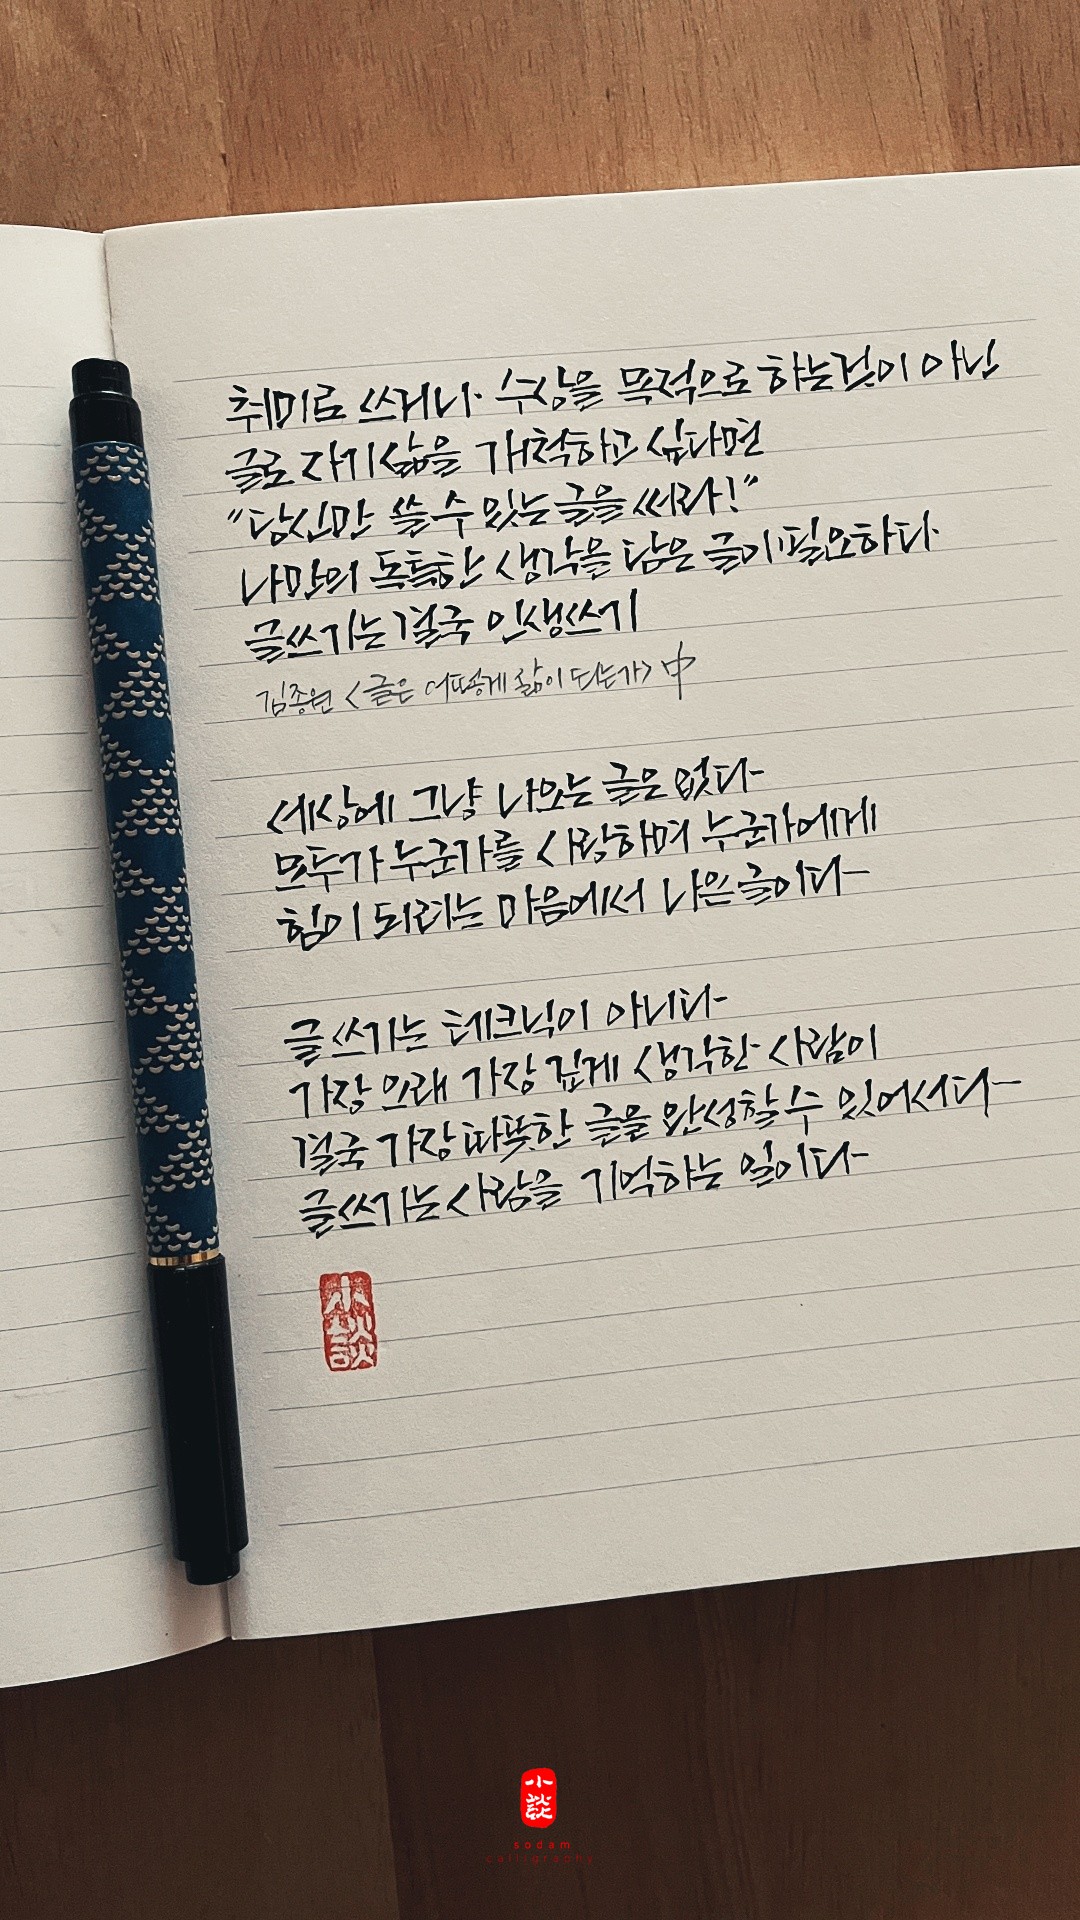 취미로 쓰거나 수상을 목적으로 하는것이 아닌
글로 자기 삶을 개척하고 싶다면
"당신만 쓸 수 있는 글을 써라!"
나만의 독특한 생각을 담은 글이 필요하다.
글쓰기는 결국 인생쓰기
김종원 <글은 어떻게 삶이 되는가> 中
세상에 그냥 나오는 글은 없다
모두가 누군가를 사랑하며 누군가에게
힘이 되려는 마음에서 나온 글이다
글쓰기는 테크닉이 아니다
가장 오래 가장 깊게 생각한 사람이
결국 가장 따뜻한 글을 완성할 수 있어서다
글쓰기는 사람을 기억하는 일이다
小談
小談
sodam
calligraphy